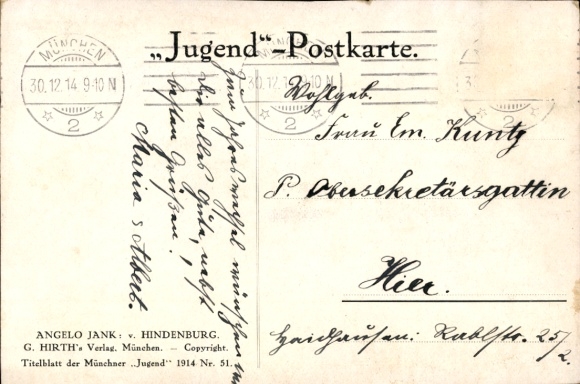 „Jugend“-Postkarte.
MÜNCHEN
30.12.14. 9-10 N
2
MÜNCHEN
30.12.14. 9-10 N
2
Zum Jahreswechsel wünschen wir
Dir alles Gute, nebst
besten Grüßen!
Maria & Albert.
Wohlgeb.
Frau Em. Kuntz
P. Obersekretärsgattin
Hier.
Haidhausen: Rablstr. 25/2.
ANGELO JANK: v. HINDENBURG.
G. HIRTH's Verlag, München. — Copyright.
Titelblatt der Münchner „Jugend“ 1914 Nr. 51.